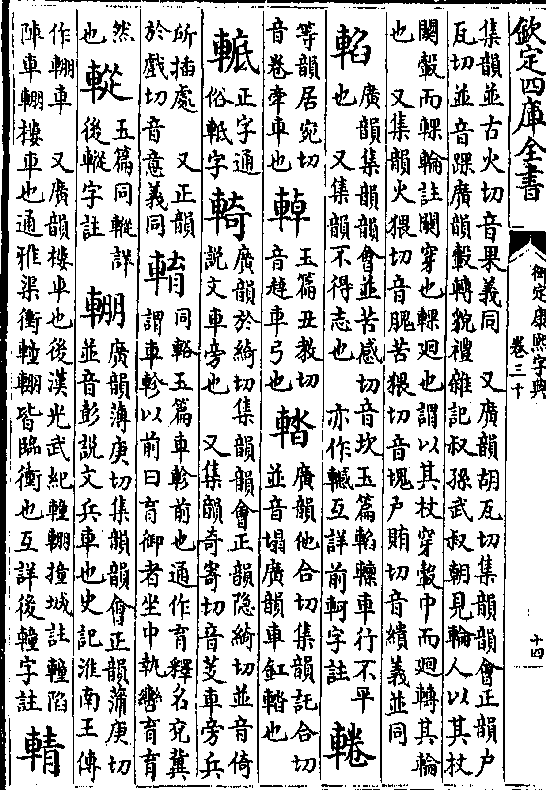 欽定四庫全書
御定康熙字典
卷三十
十四
集韻並古火切音果義同　又廣韻胡瓦切集韻韻會正韻戶
瓦切並音踝廣韻轂轉貌禮雜記叔孫武叔朝見輪人以其杖
關轂而輠輪註關穿也輠迴也謂以其杖穿轂中而迴轉其輪
也　又集韻火猥切音賄苦猥切音塊戶賄切音繢義並同
輡
廣韻集韻韻會並苦感切音坎玉篇輡轗車行不平
也　又集韻不得志也　亦作轗互詳前軻字註
輇
等韻居宛切
音卷牽車也
䡴
玉篇丑教切
音趠車弓也
䡩
廣韻他合切集韻託合切
並音塌廣韻車釭䡩也
䡋
正字通
俗軝字
輢
廣韻於綺切集韻韻會正韻隱綺切並音倚
說文車旁也　又集韻奇寄切音芰車旁兵
所插處　又正韻
於戲切音意義同
䡎
同輅玉篇車軫前也通作育釋名兗冀
謂車軫以前曰育御者坐中執轡育育
然
也
䡮
五篇同䡮詳
後䡮字註
輣
廣韻薄庚切集韻韻會正韻蒲庚切
並音彭說文兵車也史記淮南王傳
作輣車　又廣韻樓車也後漢光武紀䡴輣撞城註䡴陷
陣車輣樓車也通雅渠衝䡴輣皆臨衝也互詳後䡴字註
輤